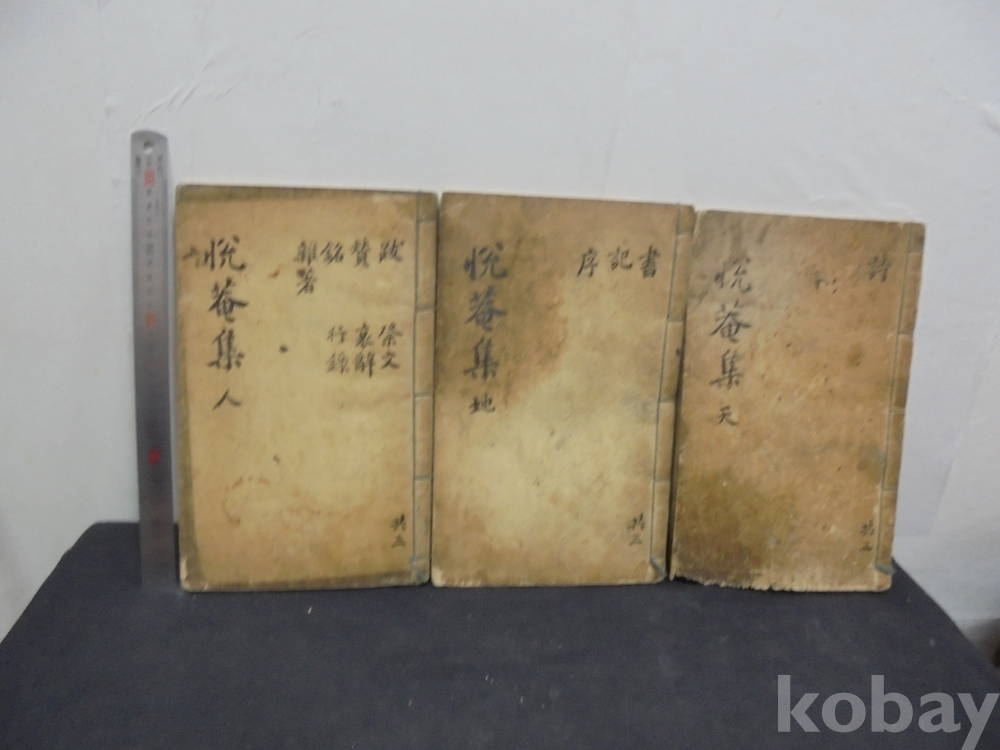 詩
悅菴集 天
共三
書記序
悅菴集 地
共三
跋 祭文
賛 哀辭
銘 行錄
雜著
悅菴集 人
共三
kobay